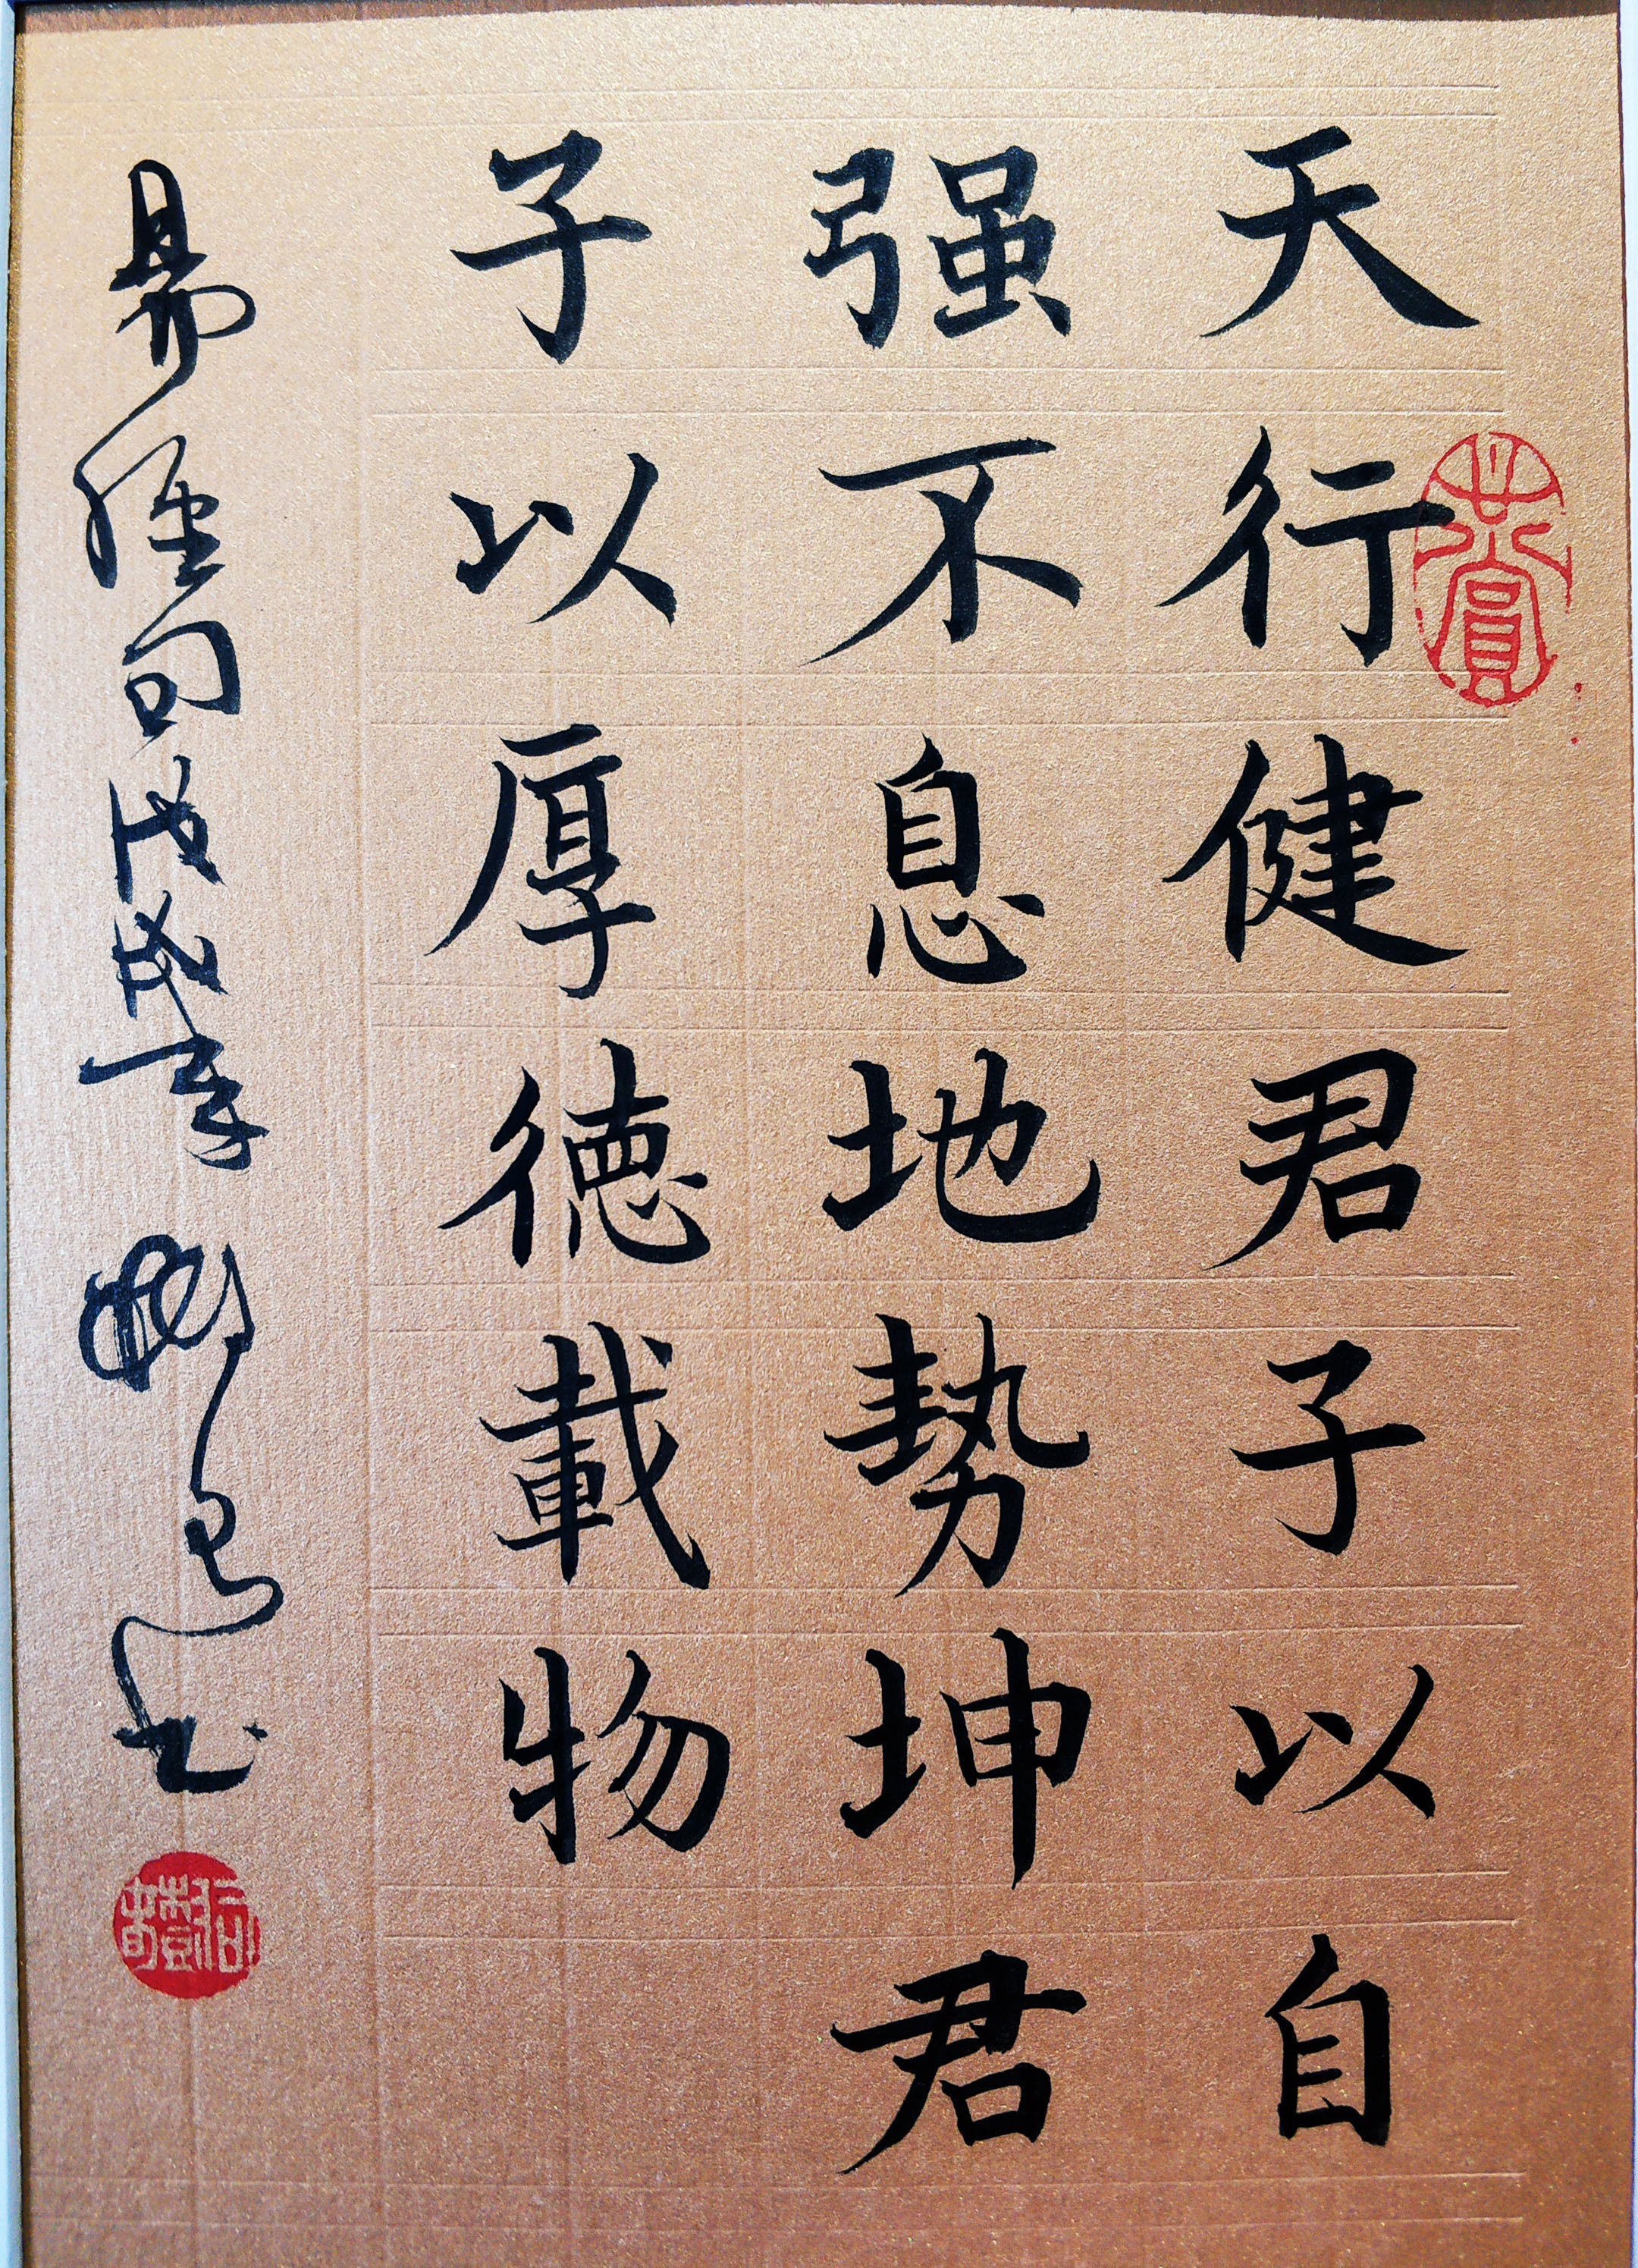 天行健君子以自
强不息地势坤君
子以厚德載物
易經句戊戌年
书
共賞